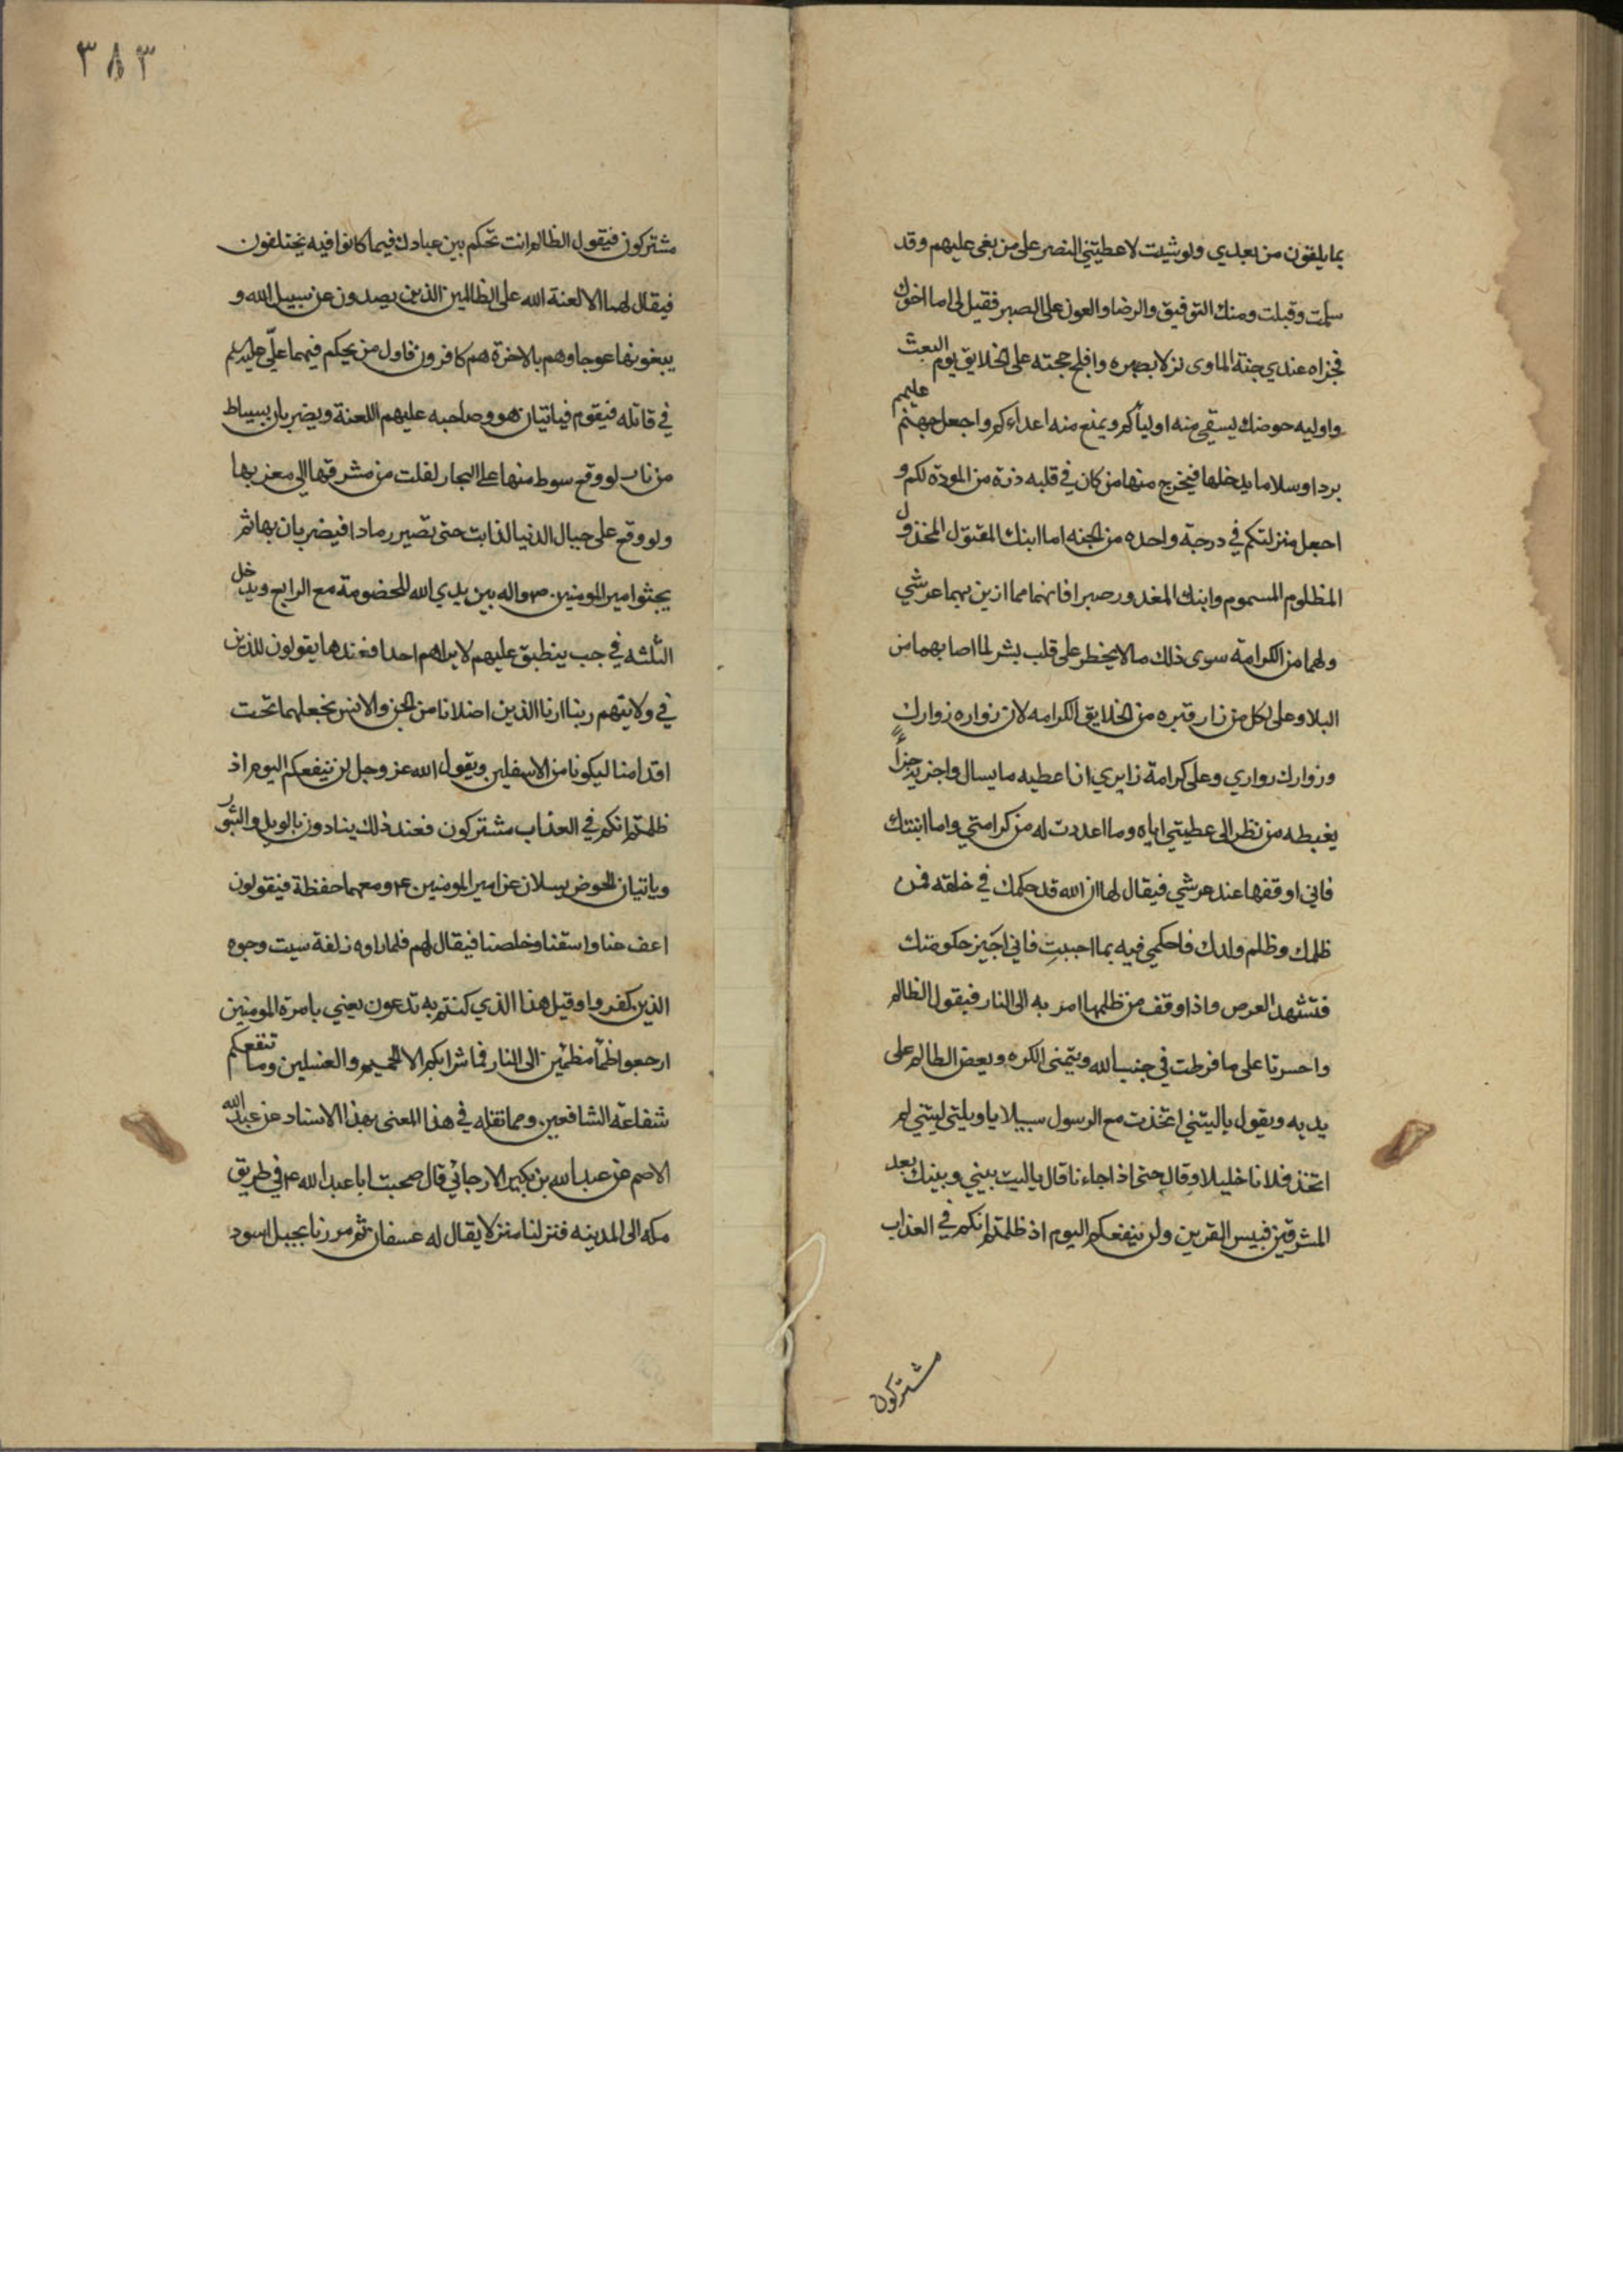 بما يلقون من بعدي ولو شيت لاعطيتني النصر على من بغى عليهم وقد
سلمت وقبلت ومنك التوفيق والرضا والعون على الصبر فقيل لي اما اخوك
فجزاه عندي جنة الماوى نزلا بصبره وافلج حجته على الخلايق يوم البعث
واوليه حوضك يسقي منه اولياكم ويمنع منه اعداءكم واجعل جهنم عليهم
بردا وسلاما يدخلها فيخرج منها من كان في قلبه ذرة من المودة لكم و
اجعل منزلتكم في درجة واحده من الجنه اما ابنك المقتول المخذول
المظلوم المسموم وابنك المغدور صبرا فانهما مما ازين بهما عرشي
ولهما من الكرامة سوى ذلك ما لا يخطر على قلب بشر لما اصابهما من
البلا وعلي لكل من زار قبره من الخلايق الكرامه لان زواره زوارك
وزوارك زواري وعلي كرامة زايري انا اعطيه ما يسال واجزيه جزاء
يغبطه من نظر الى عطيتي اياه وما اعددت له من كرامتي واما ابنتك
فاني اوقفها عند عرشي فيقال لها ان الله قد حكمك في خلقه فمن
ظلمك وظلم ولدك فاحكمي فيه بما احببت فاني اجيز حكومتك
فتشهد العرص واذا اوقف من ظلمها امر به الى النار فيقول الظالم
واحسرتا على ما فرطت في جنب الله ويتمنى الكره ويعض الظالم على
يديه ويقول ياليتني اتخذت مع الرسول سبيلا ياويلتي ليتني لم
اتخذ فلانا خليلا وقال حتى اذا جاءنا قال ياليت بيني وبينك بعد
المشرقين فبيس القرين ولن ينفعكم اليوم اذ ظلمتم انكم في العذاب
مشتركون
٣٨٣
مشتركون فيقول الظالم انت تحكم بين عبادك فيما كانوا فيه يختلفون
فيقال لهما الا لعنة الله على الظالمين الذين يصدون عن سبيل الله و
يبغونها عوجا وهم بالاخرة هم كافرون فاول من يحكم فيهما علي عليه
في قاتله فيقوم فياتيان هو وصاحبه عليهم اللعنة ويضربان بسياط
من نار لو وقع سوط منها على البحار لغلت من مشرقها الى مغربها
ولو وقع على جبال الدنيا لذابت حتى تصير رمادا فيضربان بها ثم
يجثوا مير المومنين ص واله بين يدي الله للخصومة مع الرابع ويدخل
الثلثه في جب ينطبق عليهم لا يراهم احدا فعندها يقولون للذين
في ولايتهم ربنا ارنا الذين اضلانا من الجن والانس نجعلهما تحت
اقدامنا ليكونا من الاسفلين ويقول الله عز وجل لن ينفعكم اليوم اذ
ظلمتم انكم في العذاب مشتركون فعند ذلك ينادون بالويل والثبور
وياتيان الحوض يسلان عن امير المومنين ع ومعهما حفظة فيقولون
اعف عنا واسقنا وخلصنا فيقال لهم فلما راوه زلفة سيت وجوه
الذين كفروا وقيل هذا الذي كنتم به تدعون يعني بامرة المومنين
ارجعوا ظمأ مظمئين الى النار فما شرابكم الا الحميم والغسلين وما تنفعكم
شفاعة الشافعين ومما نقله في هذا المعنى بهذا الاسناد عن عبد الله
الاصم عن عبد الله بن بكير الارجاني قال صحبت ابا عبد الله ع في طريق
مكه الى المدينه فنزلنا منزلا يقال له عسفان ثم مررنا بجبل اسود